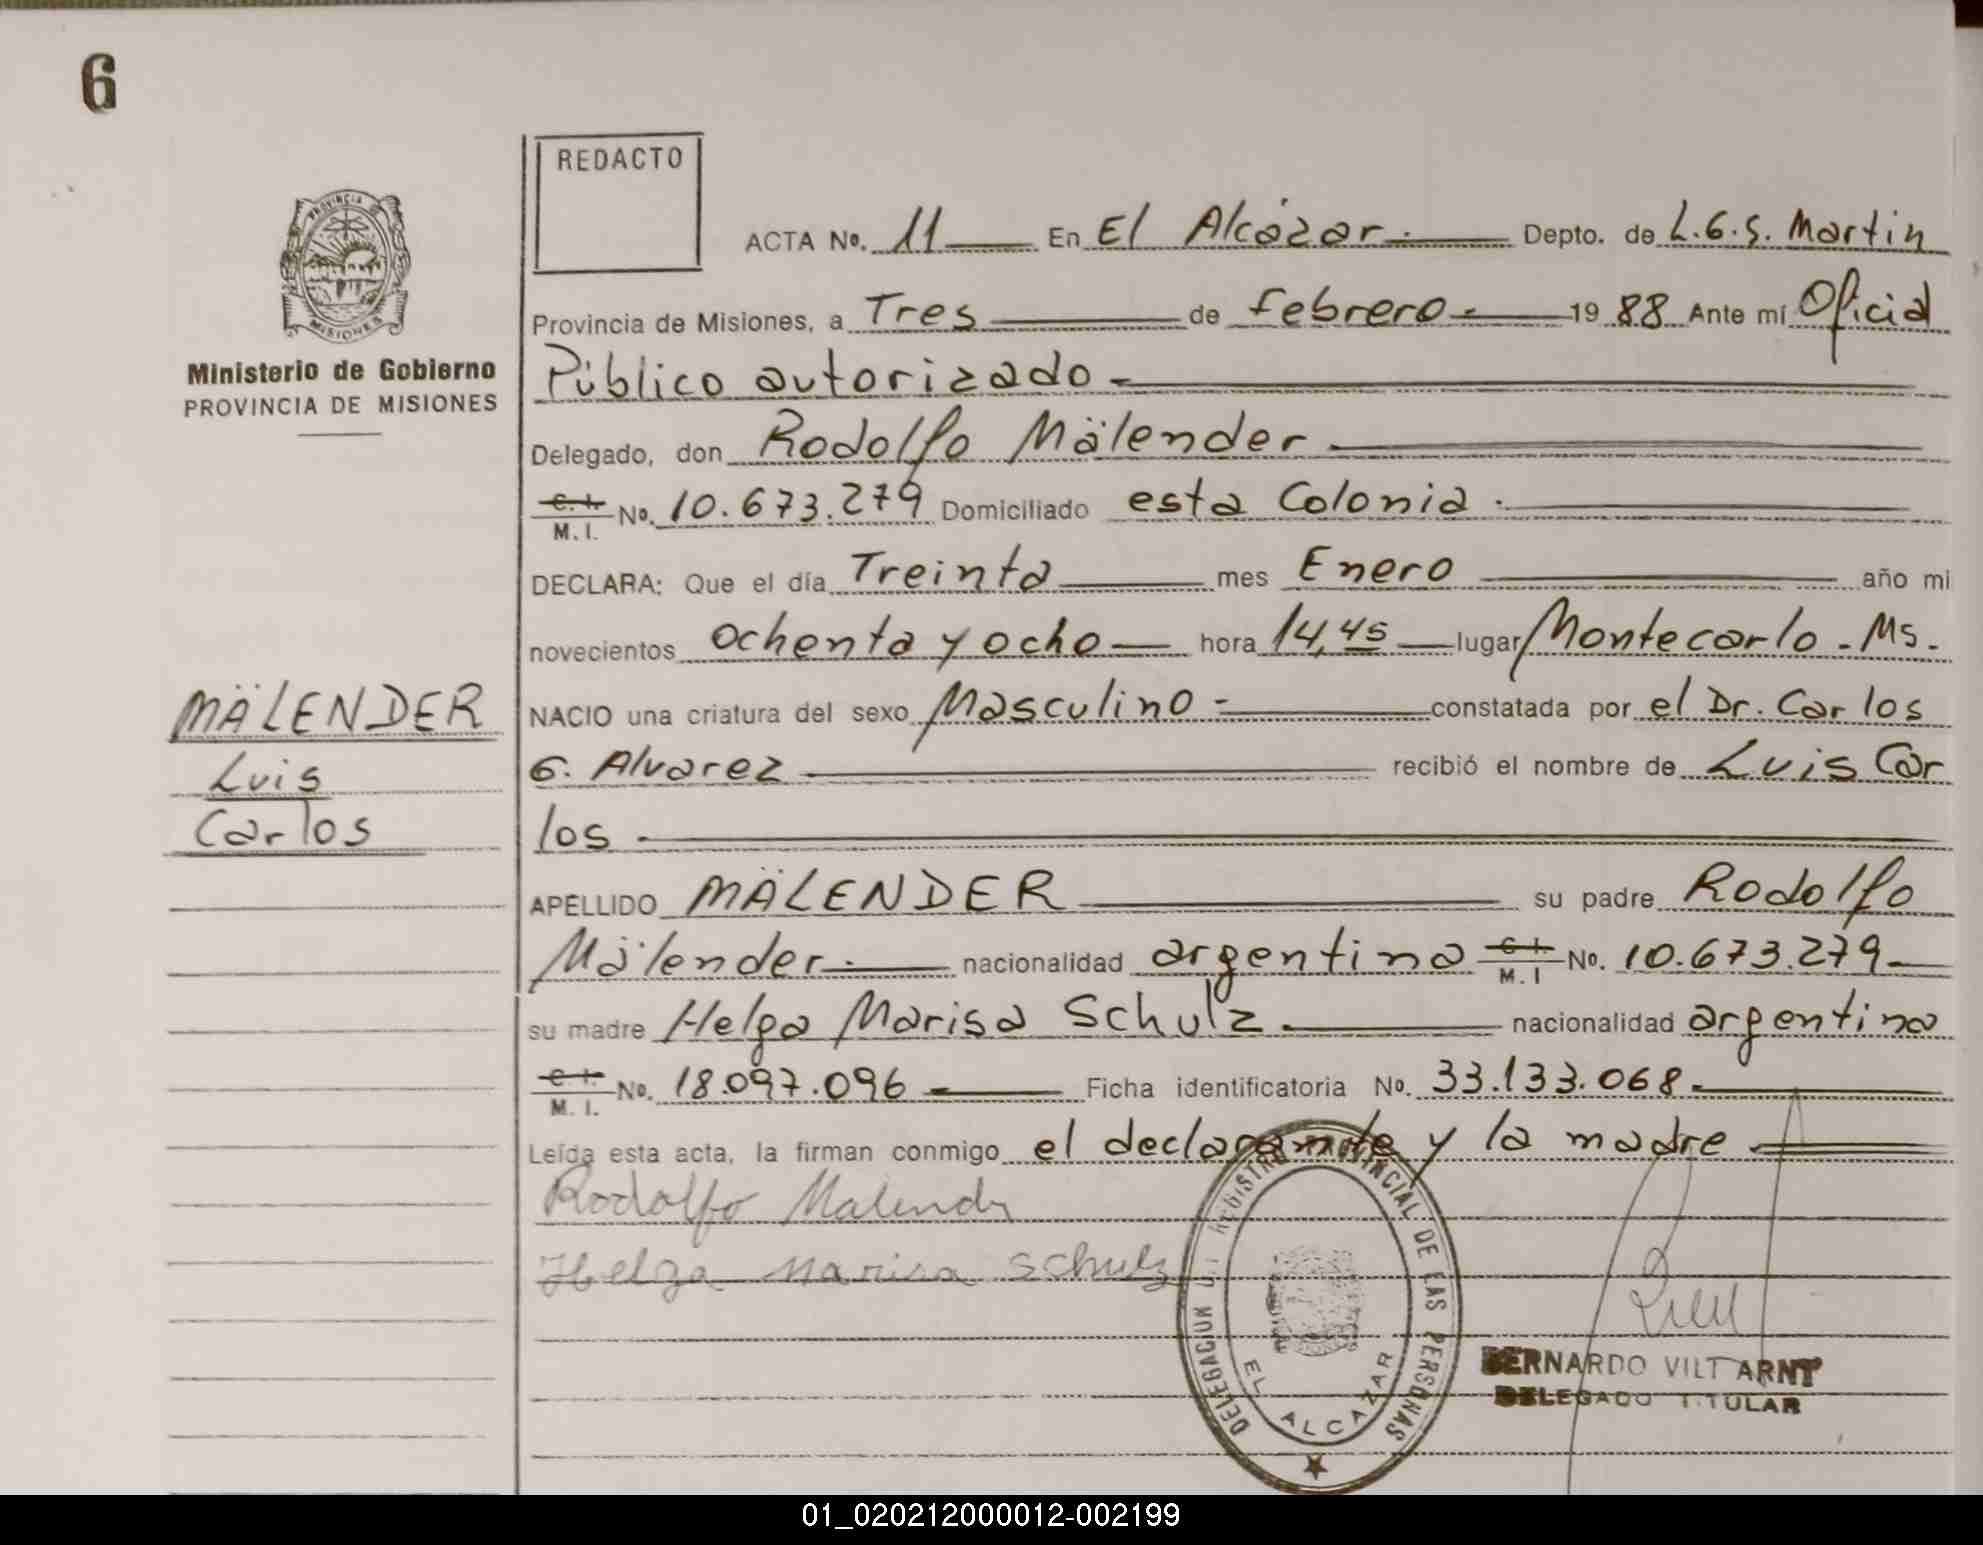 6
REDACTO
PROVINCIA DE
MISIONES
Ministerio de Gobierno
PROVINCIA DE MISIONES
MÄLENDER
Luis
Carlos
ACTA No. 11 En El Alcázar. Depto. de L.G.S. Martin
Provincia de Misiones, a Tres de febrero 19 88 Ante mí Oficial
Público autorizado
Delegado, don Rodolfo Mälender
C. I. M. I. No. 10.673.279 Domiciliado esta Colonia.
DECLARA: Que el día Treinta mes Enero año mi
novecientos ochenta y ocho hora 14,45 lugar Montecarlo - Ms.
NACIO una criatura del sexo Masculino constatada por el Dr. Carlos
G. Alvarez recibió el nombre de Luis Car
los
APELLIDO MÄLENDER su padre Rodolfo
Mälender. nacionalidad argentino C. I. M. I No. 10.673.279
su madre Helga Marisa Schulz. nacionalidad argentina
C. I. M. I. No. 18.097.096 Ficha identificatoria No. 33.133.068
Leída esta acta, la firman conmigo el declarante y la madre
Rodolfo Malender
Helga Marisa Schulz
DELEGACION REGISTRO PROVINCIAL DE LAS PERSONAS
EL ALCAZAR
BERNARDO VILT ARNT
DELEGADO TITULAR
01_020212000012-002199